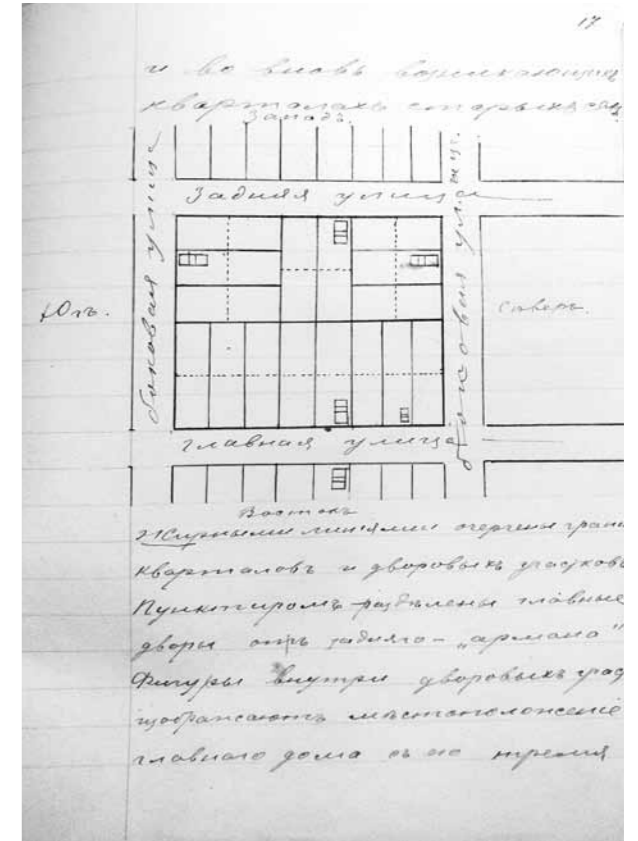 17
и во вновь возникающихъ
кварталахъ старыхъ
Западъ.
Задняя улица
боковая улица
боковая улица
Югъ.
Северъ.
главная улица
Востокъ
Жирными линіями очерчены грани
кварталовъ и дворовыхъ участковъ
Пунктиромъ раздѣлены главные
дворы отъ задняго - „армана"
Фигуры внутри дворовыхъ учас
изображаютъ мѣстоположеніе
главнаго дома съ его тремя